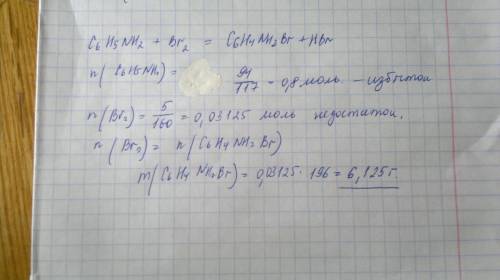 C6H5NH2 + Br2 = C6H4NH2Br + HBr
n(C6H5NH2) = 94/117 = 0,8 моль - избыток
n(Br2) = 5/160 = 0,03125 моль недостаток.
n(Br2) = n(C6H4NH2Br)
m(C6H4NH2Br) = 0,03125 · 196 = 6,125г.